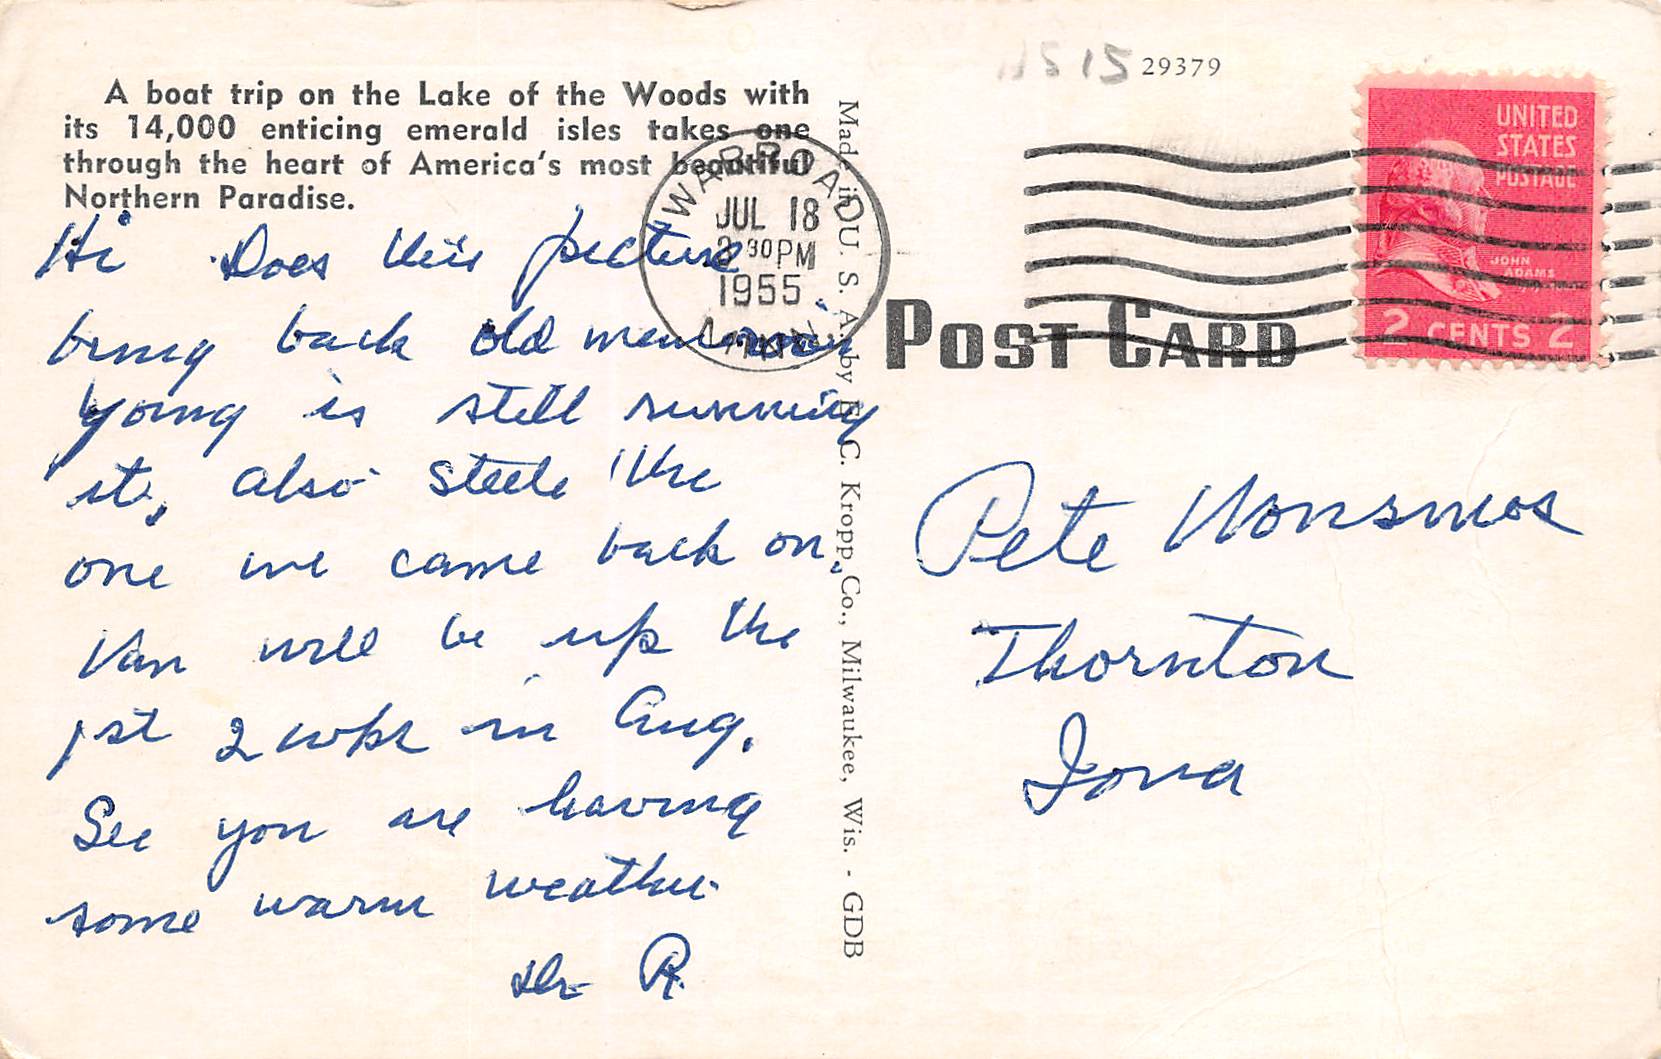 A boat trip on the Lake of the Woods with
its 14,000 enticing emerald isles takes one
through the heart of America's most beautiful
Northern Paradise.
Hi Does this picture
bring back old memories
Young is still running
it, also Steele the
one we came back on.
Van will be up the
1st 2 wks in Aug.
See you are having
some warm weather
Dr R.
Made in U. S. A. by E. C. Kropp Co., Milwaukee, Wis. - GDB
WARROAD
JUL 18
30 PM
1955
MINN.
15 29379
UNITED
STATES
POSTAGE
JOHN
ADAMS
2 CENTS 2
POST CARD
Pete
Thornton
Iowa